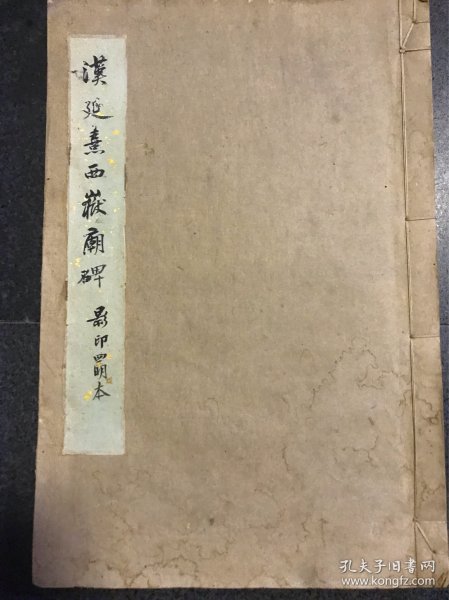 漢延熹西嶽廟碑
影印四明本
孔夫子旧书网
www.kongfz.com